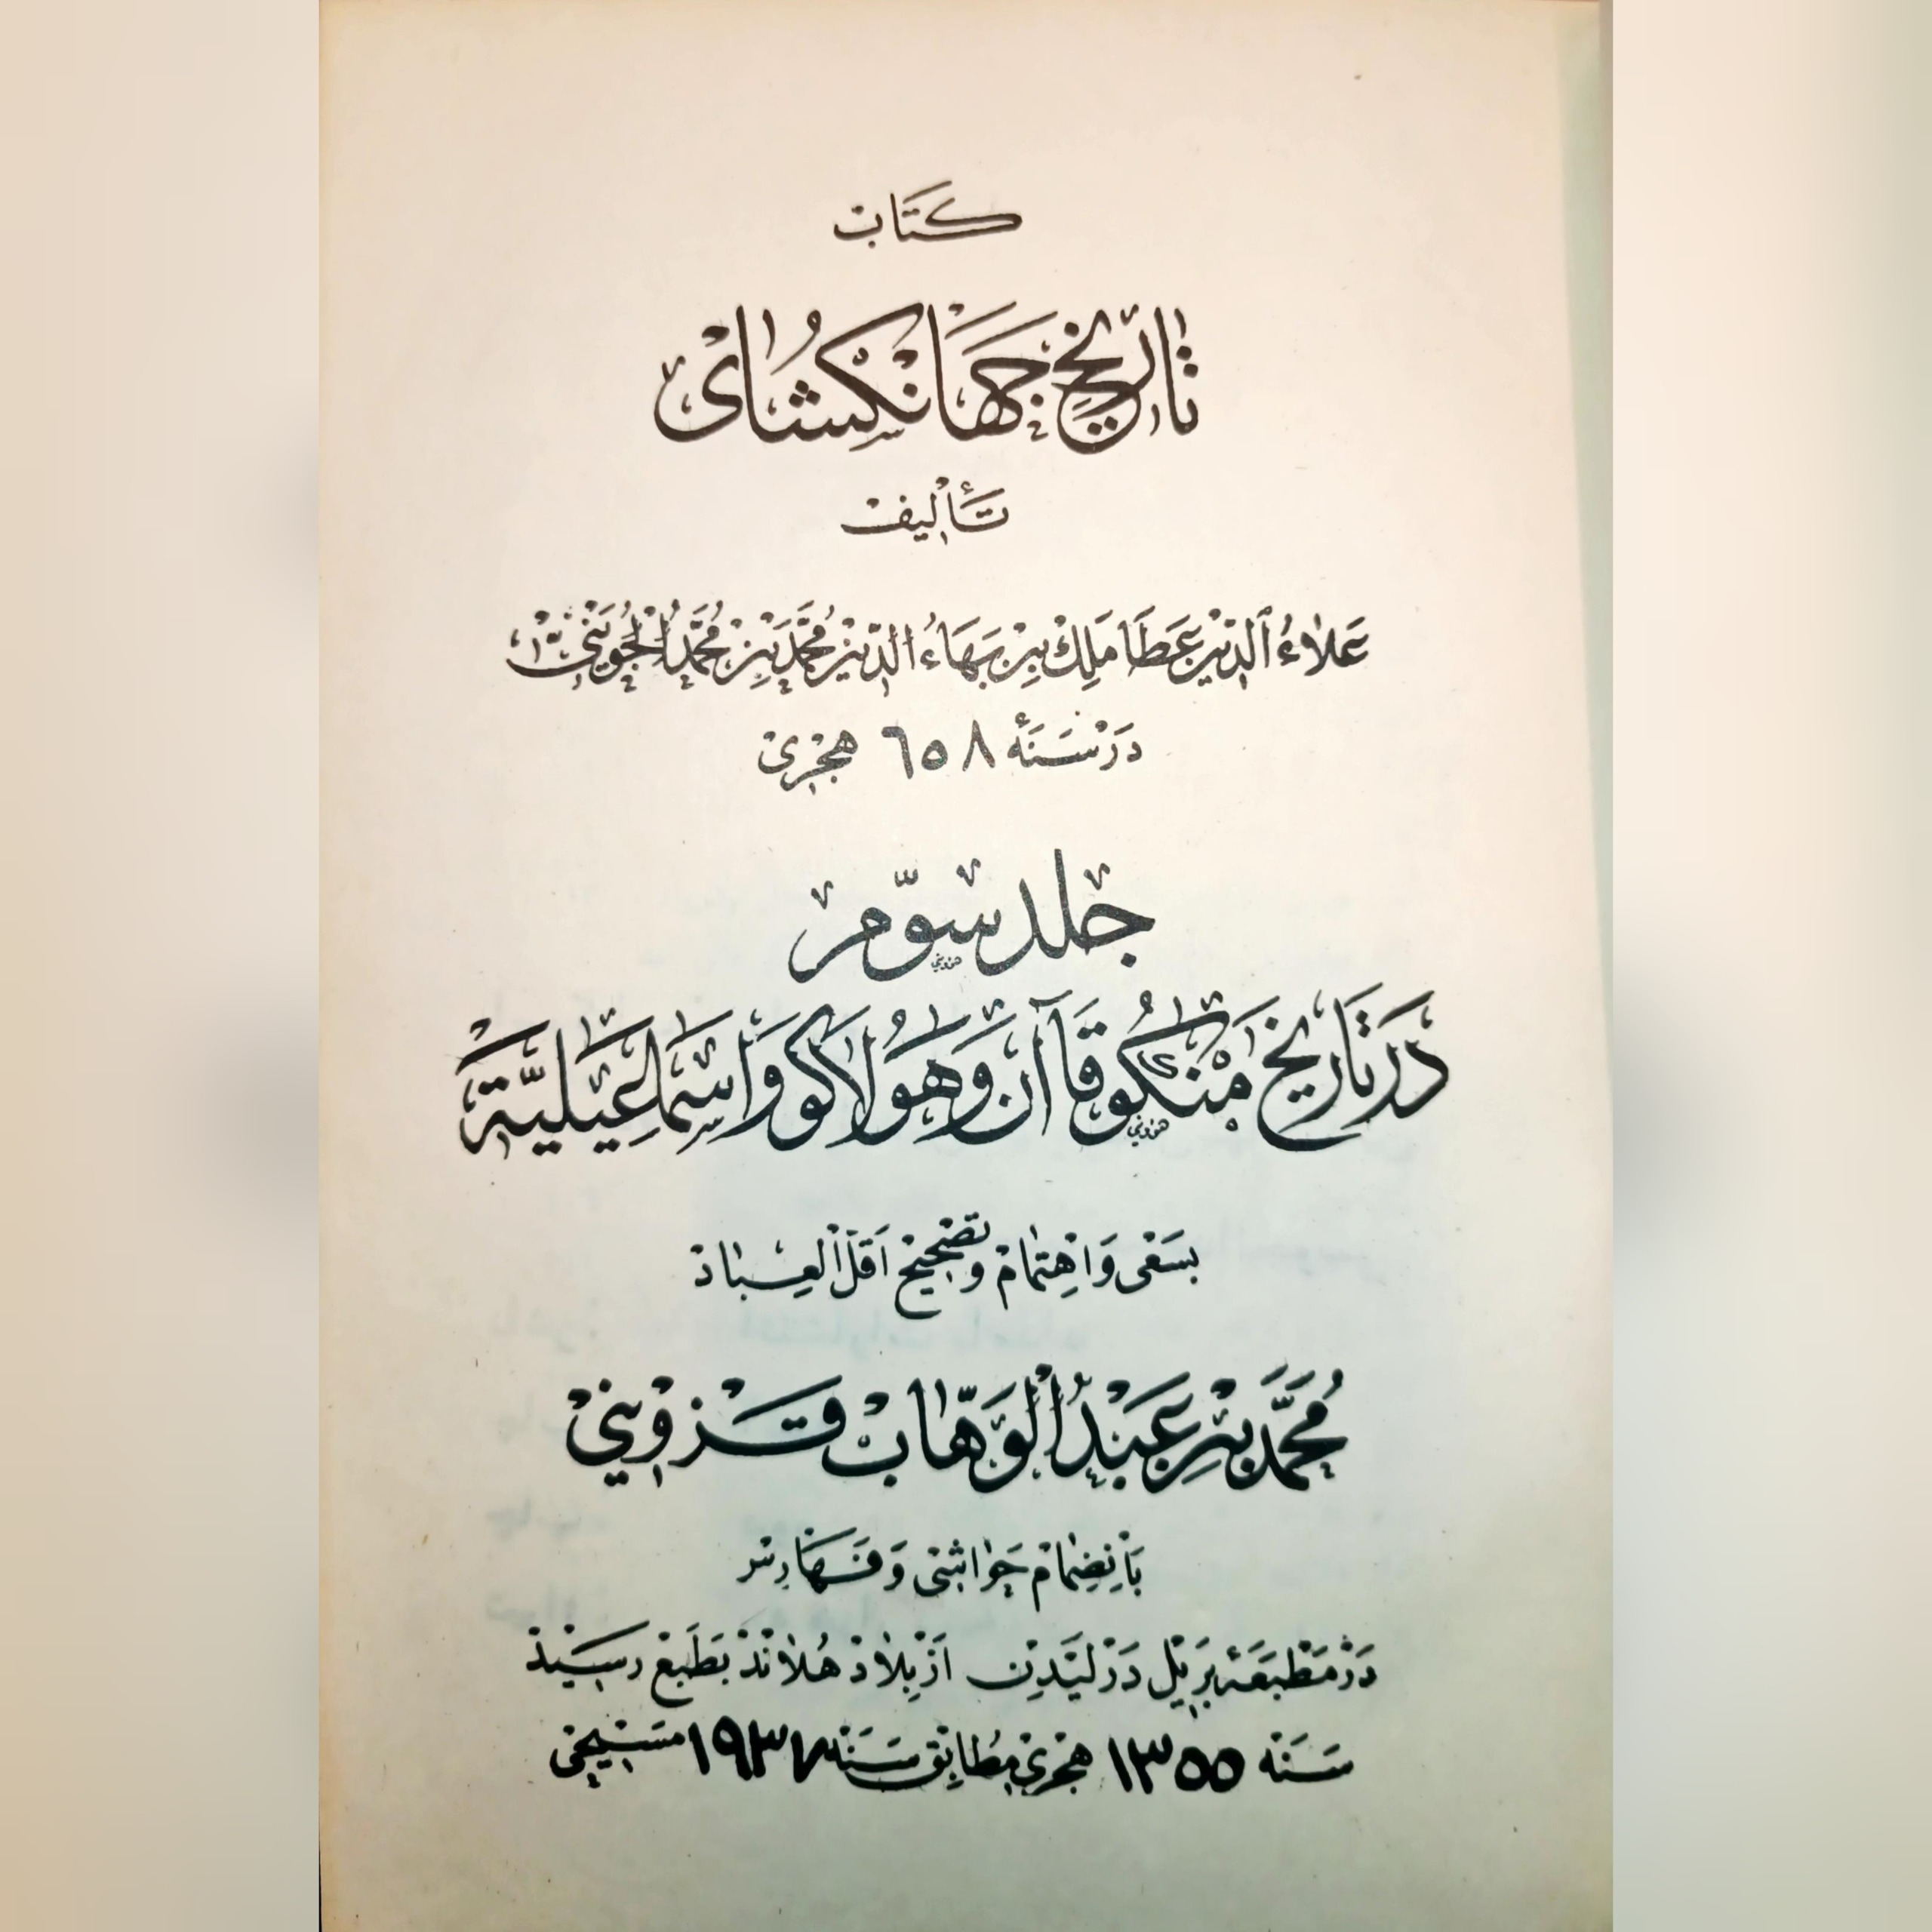 كتاب
تاریخ جهانكشای
تألیف
علاء الدین عطا ملك بن بهاء الدین محمد بن محمد الجوینی
در سنهٔ ٦٥٨ هجری
جلد سوّم
در تاریخ منكو قاآن و هولاكو و اسماعیلیّة
بسعی و اهتمام و تصحیح اقلّ العباد
محمّد بن عبد الوهّاب قزوینی
با نضمام حواشی و فهارس
در مطبعهٔ بریل در لیدن از بلاد هلاند بطبع رسید
سنه ١٣٥٥ هجری مطابق سنه ١٩٣٧ مسیحی